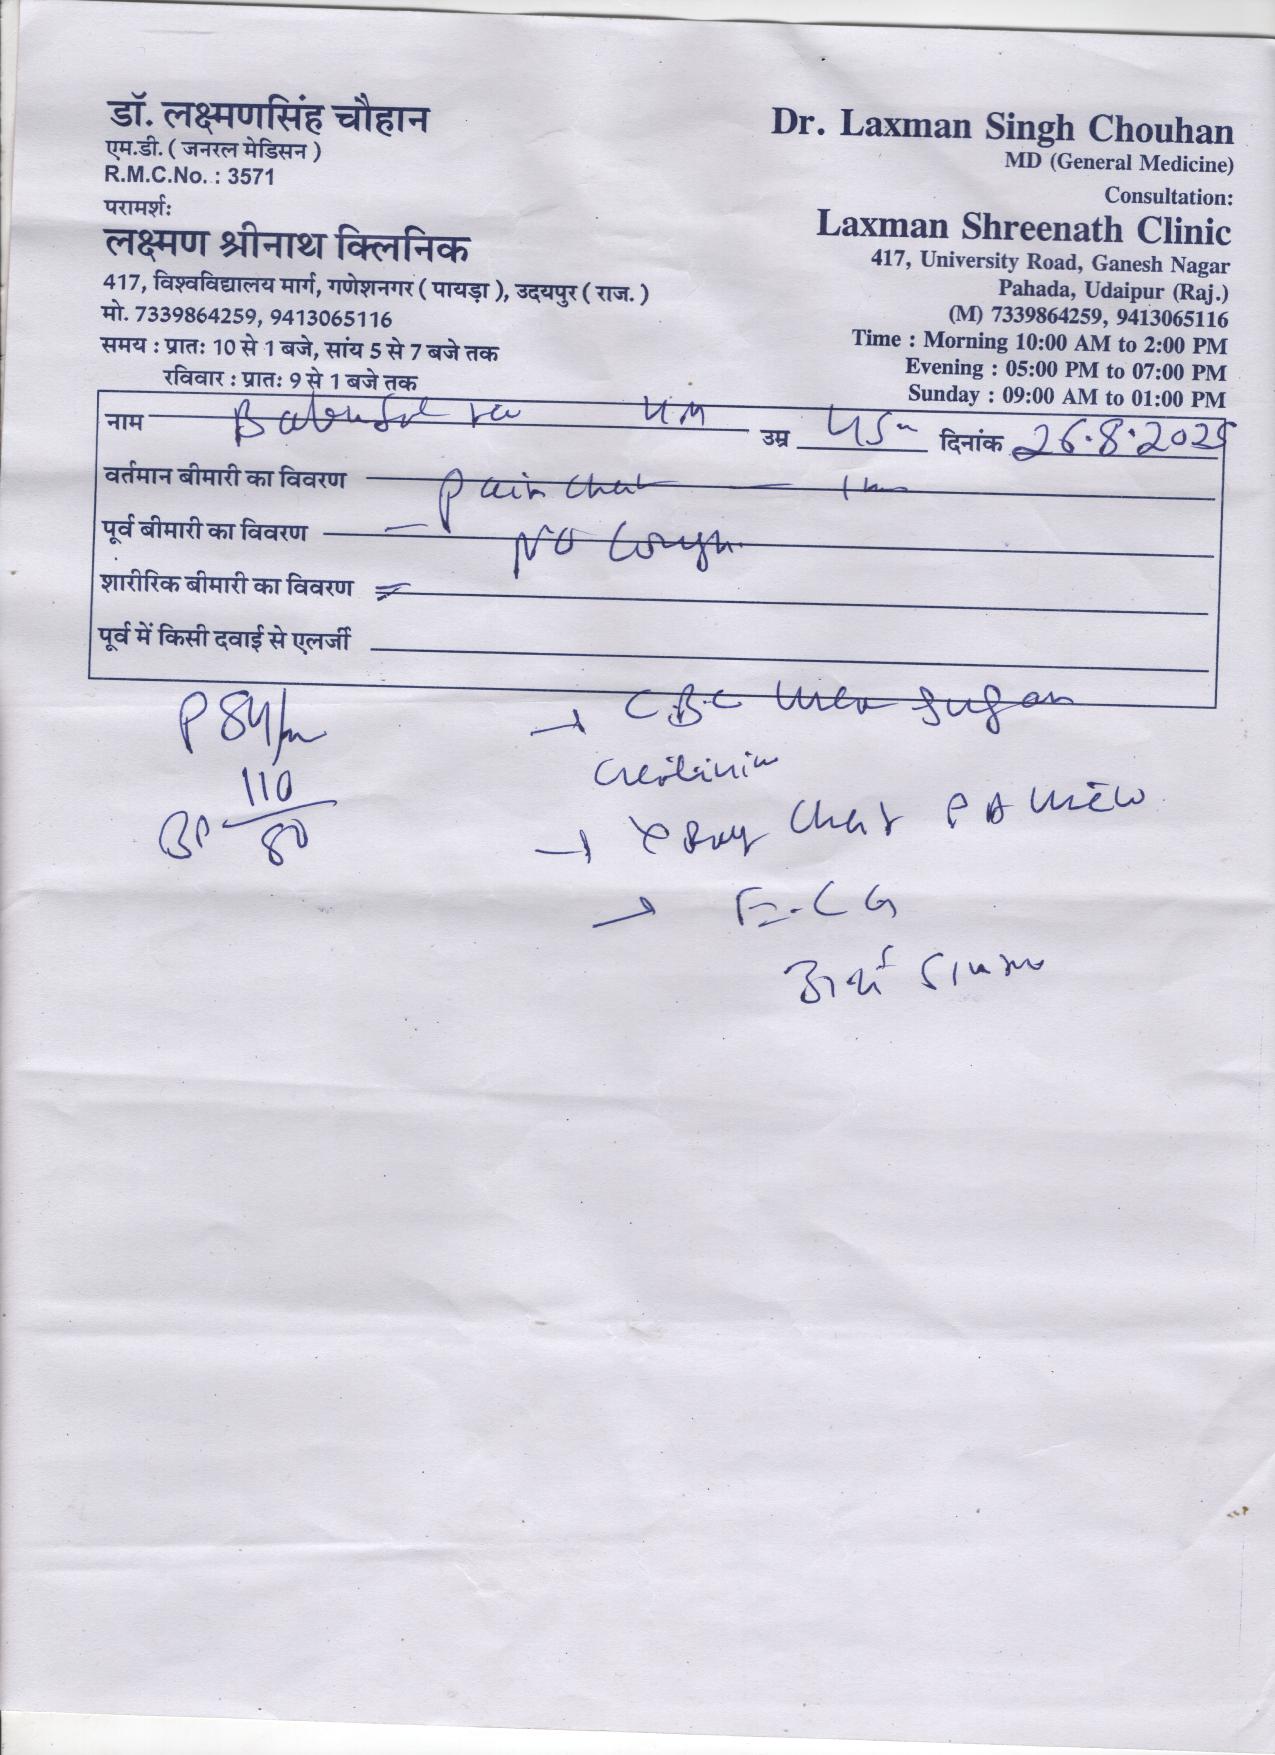 डॉ. लक्ष्मणसिंह चौहान
एम.डी. ( जनरल मेडिसन )
R.M.C.No. : 3571
परामर्शः
लक्ष्मण श्रीनाथ क्लिनिक
417, विश्वविद्यालय मार्ग, गणेशनगर ( पायड़ा ), उदयपुर ( राज. )
मो. 7339864259, 9413065116
समय : प्रातः 10 से 1 बजे, सांय 5 से 7 बजे तक
रविवार : प्रातः 9 से 1 बजे तक
Dr. Laxman Singh Chouhan
MD (General Medicine)
Consultation:
Laxman Shreenath Clinic
417, University Road, Ganesh Nagar
Pahada, Udaipur (Raj.)
(M) 7339864259, 9413065116
Time : Morning 10:00 AM to 2:00 PM
Evening : 05:00 PM to 07:00 PM
Sunday : 09:00 AM to 01:00 PM
नाम उम्र 45 दिनांक 26.8.2025
वर्तमान बीमारी का विवरण Pain Chest
पूर्व बीमारी का विवरण No Cough
शारीरिक बीमारी का विवरण
पूर्व में किसी दवाई से एलर्जी
P 84/m
BP 110/80
→ CBC Urea Sugar
Creatinine
→ X Ray Chest PA View
→ E.C.G